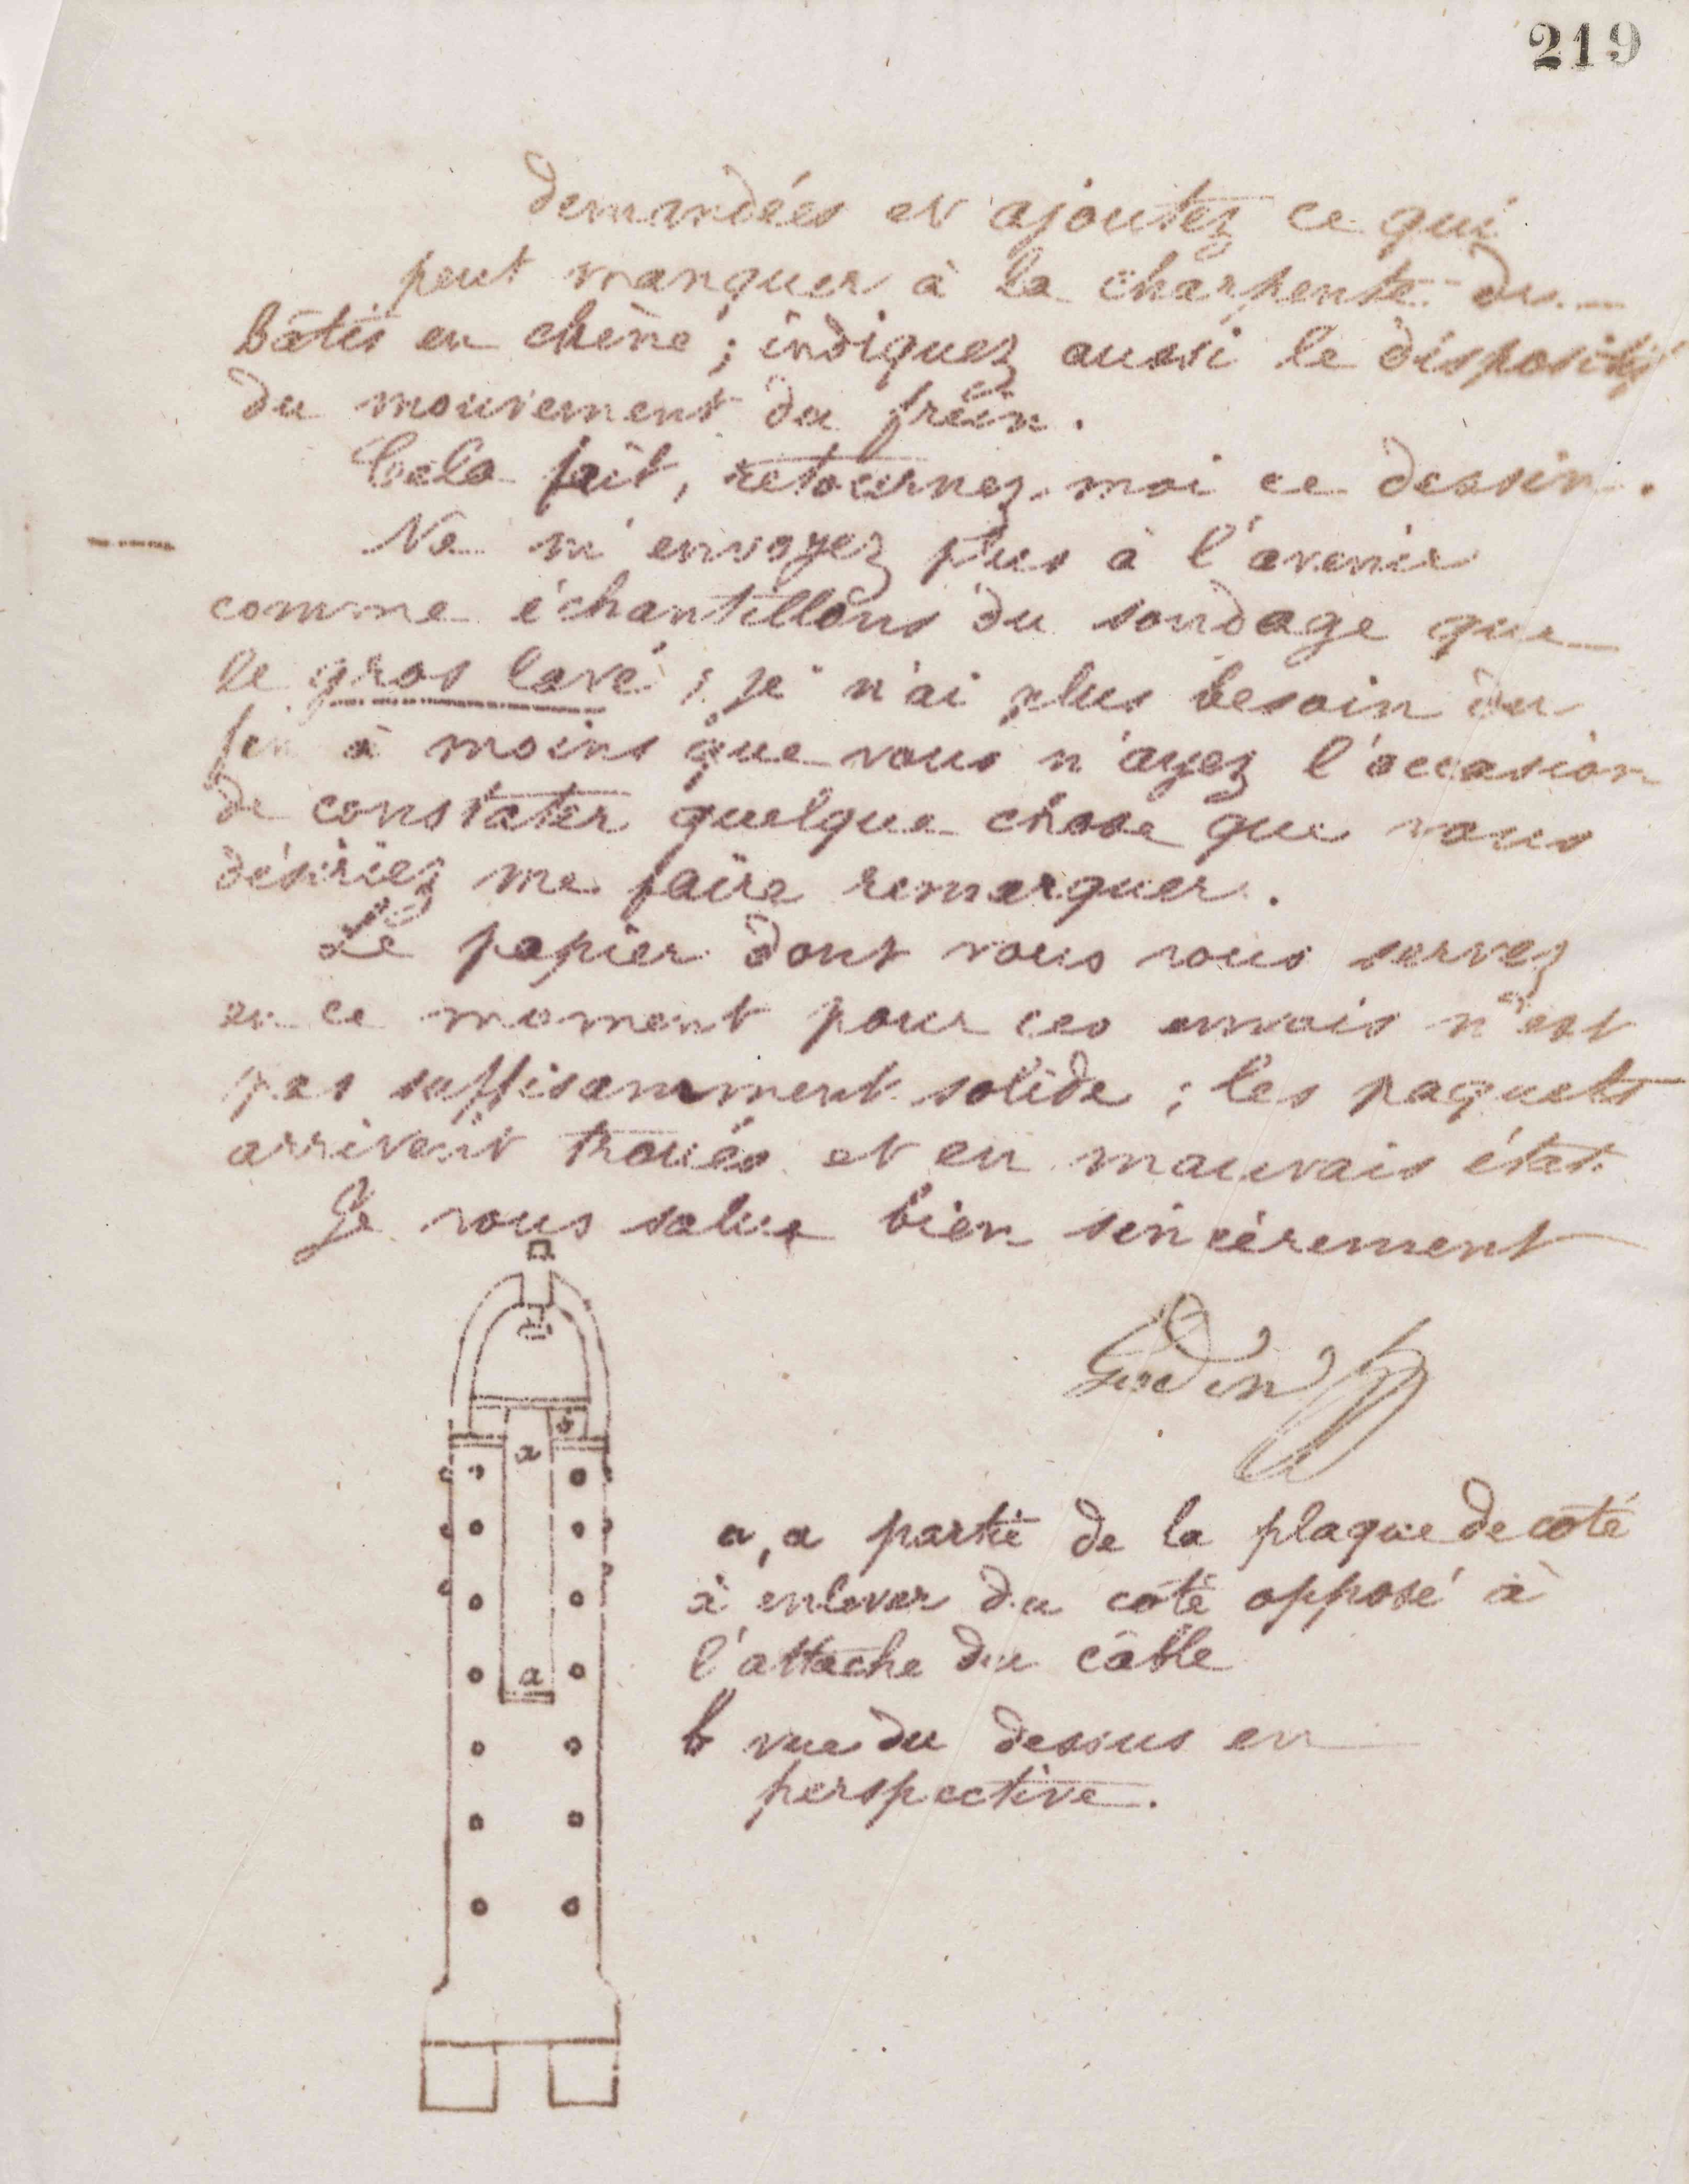 219
demandées et ajoutez ce qui
peut manquer à la charpente du
bâtis en chêne ; indiquez aussi le dispositif
du mouvement du frein.
Cela fait, retournez-moi ce dessin.
Ne m'envoyez plus à l'avenir
comme échantillons du sondage que
le gros lavé ; je n'ai plus besoin du
fin à moins que vous n'ayez l'occasion
de constater quelque chose que vous
désiriez me faire remarquer.
Le papier dont vous vous servez
en ce moment pour ces envois n'est
pas suffisamment solide ; les paquets
arrivent troués et en mauvais état.
Je vous salue bien sincèrement
Godin
b
a
a
a, a partie de la plaque de coté
à enlever du coté opposé à
l'attache du câble
b vue du dessus en
perspective.